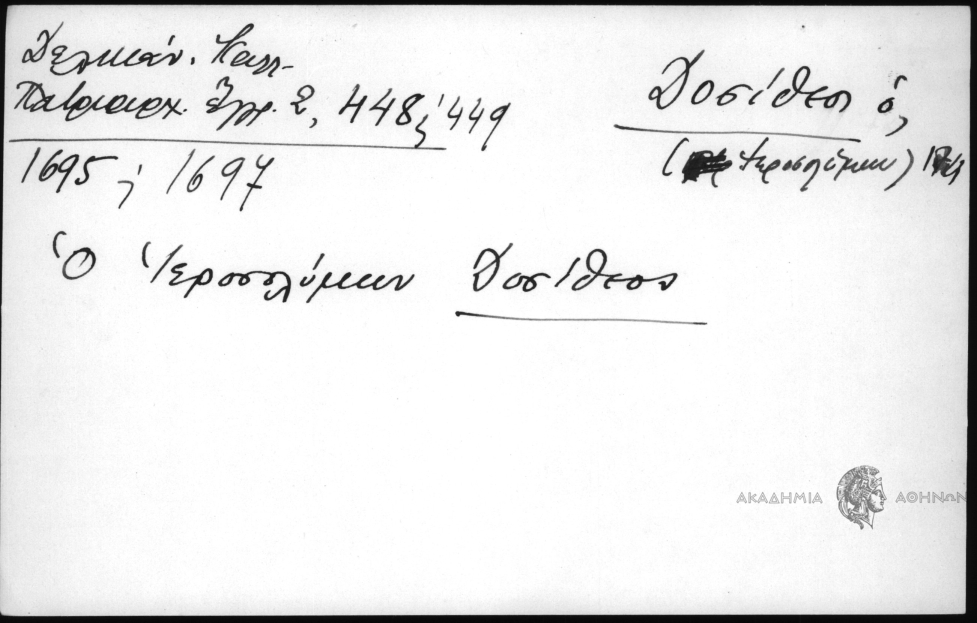 Δελικάν. Καλλ-
Πατριαρχ. Ἔγγρ. 2, 448 ; 449
1695 ; 1697
Δοσίθεος ὁ,
(Ἱεροσολύμων)
Ὁ Ἱεροσολύμων Δοσίθεος
ΑΚΑΔΗΜΙΑ ΑΘΗΝΩΝ